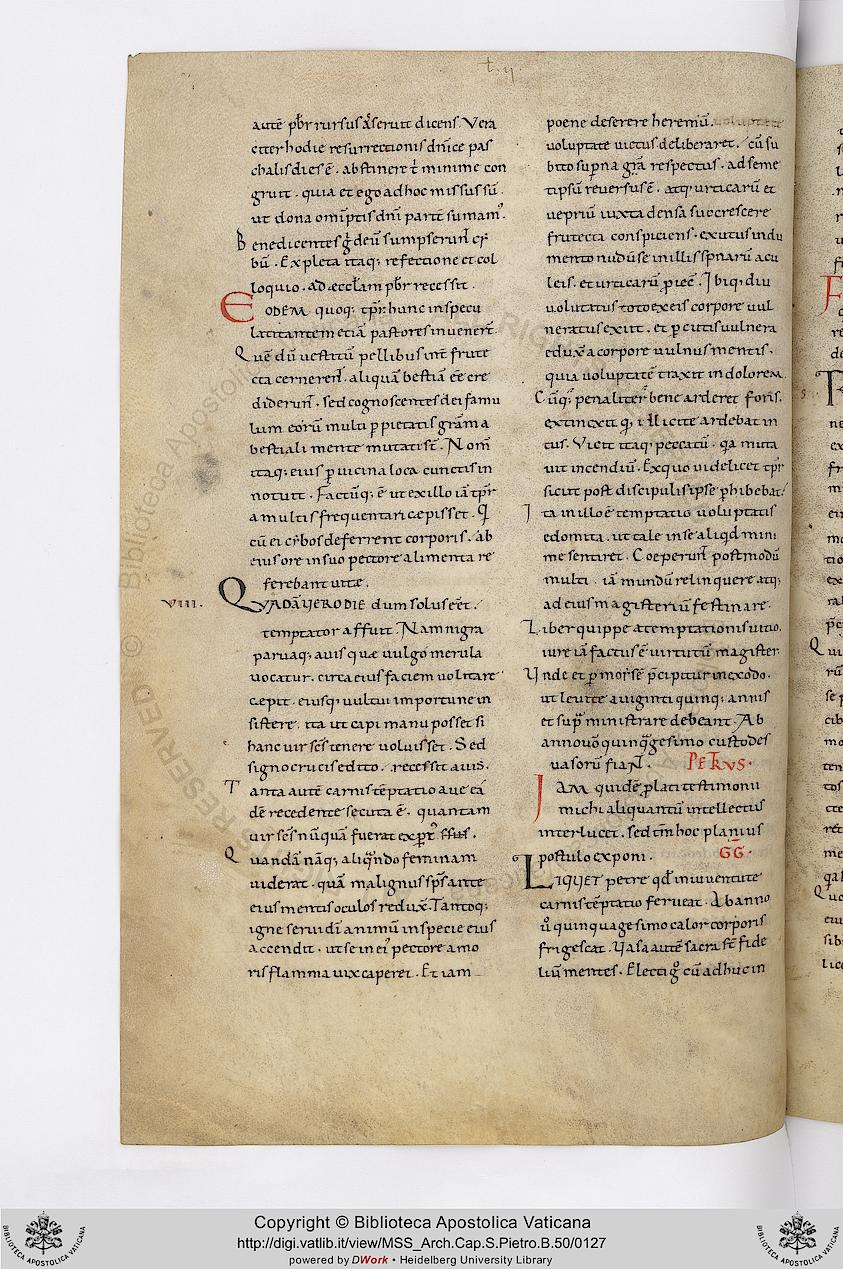 t. ij
autē pbr̄ rursus asseruit dicens. Vera
citer hodie resurrectionis dn̄ice pas
chalis dies ē. abstinere t̄ minime con
gruit. quia et ego ad hoc missus sū.
ut dona om̄iptīs dn̄i paritē sumam᾽.
Benedicentes g̊ deū sumpserunt̄ ci
bū. Expleta itaq; refectione et col
loquio. ad æccl̄am pbr̄ recessit.
EODEM quoq; tp̄r hunc in specu
latitantem etiā pastores invenerūt.
Quē dū vestitū pellibus int̄ frute
cta cerneren̄t. aliquā bestiā eē cre
diderun̄t. sed cognoscentes dei famu
lum eorū multi ꝑ pietatis gram̄ a
bestiali mente mutati st̄. Nom̄
itaq; eius ꝑ vicina loca cunctis in
notuit. Factūq; ē ut ex illo iā tp̄r
a multis frequentari cæpisset. Qi
cū ei cibos deferrent corporis. ab
eius ore in suo pectore alimenta re
ferebant vitæ.
VIII. QUADĀ VERO DIE dum solus eēt.
temptator affuit. Nam nigra
parvaq; avis quæ vulgo merula
vocatur. circa eius faciem volitare
cæpit. eiusq; vultui importune in
sistere. ita ut capi manu posset si
hanc vir sc̄s tenere voluisset. Sed
signo crucis edito. recessit avis.
Tanta autē carnis tēptatio ave eā
dē recedente secuta ē. quantam
vir sc̄s nūquā fuerat expert᾽.
Quandā nāq; aliqn̄do feminam
viderat. quā malignus sp̄s ante
eius mentis oculos reduxit. Tantoq;
igne servi dī animū in specie eius
accendit. ut se in ei᾽ pectore amo
ris flamma vix caperet. Et iam
poene deserere heremū.
voluptate victus deliberaret. cū su
bito supna gr̄a respectus. ad seme
tipsū reversus ē. atq; urticarū et
vepriū iuxta densa succrescere
frutecta conspiciens. exutus indu
mento nudū se in illis spinarū acu
leis. et urticarū ꝓiecit. Ibiq; diu
volutatus toto ex eis corpore vul
neratus exiit. et ꝑ cutis vulnera
eduxit a corpore vulnus mentis.
quia voluptatē traxit in dolorem.
Cūq; penaliter bene arderet foris.
extinxit q; illicite ardebat in
tus. Vicit itaq; peccatū. qa muta
vit incendiū. Ex quo videlicet tp̄r
sicut post discipulis ipse ꝑhibebat.
Ita in illo ē temptatio voluptatis
edomita. ut tale in se aliqd mini
me sentiret. Coeperun̄t postmodū
multi. iā mundū relinquere atq;
ad eius magisteriū festinare.
Liber quippe a temptationis vitio.
iure iā factus ē virtutū magister.
Unde et ꝑ moysē p̄cipitur in exodo.
ut levite a viginti quinq; annis
et supra ministrare debeant. Ab
anno vō quinquagesimo custodes
vasorū fian̄t. PETRVS.
IAM quidē ꝓlati testimonii
michi aliquantū intellectus
interlucet. sed tm̄ hoc planius
postulo exponi. GG̅.
LIQUET petre qd̄ in iuventute
carnis tēptatio ferveat. Ab anno
v̊ quinquagesimo calor corporis
frigescat. Vasa autē sacra st̄ fide
liū mentes. Electi g̊ cū adhuc in
Copyright © Biblioteca Apostolica Vaticana
http://digi.vatlib.it/view/MSS_Arch.Cap.S.Pietro.B.50/0127
powered by DWork • Heidelberg University Library